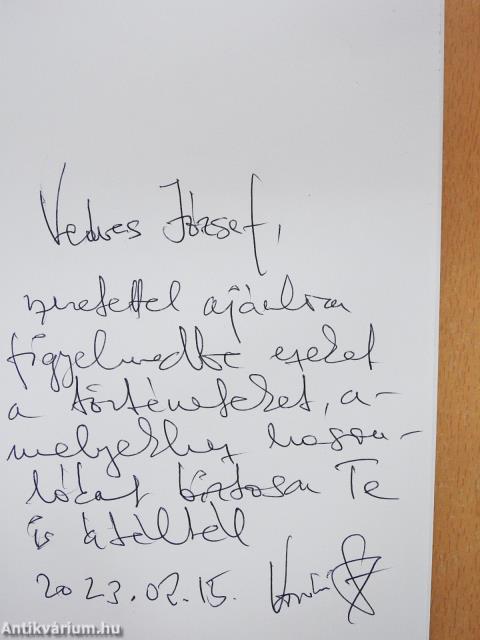 Vedres József,
szeretettel ajánlom
figyelmedbe ezeket
a történeteket, a-
melyekhez hason-
lókat biztosan Te
is átéltél
2023.02.15.
Antikvárium.hu